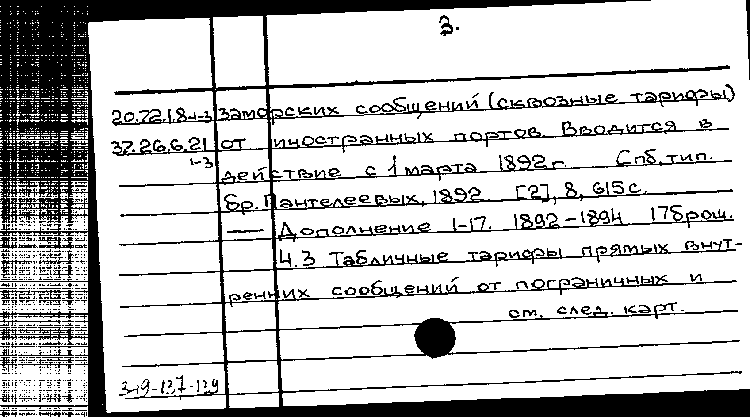 3.
20.72.1.8 1-3 заморских сообщений (сквозные тарифы)
37.26.6.21 от иностранных портов. Вводится в
1-3 действие с 1 марта 1892 г. Спб, тип.
бр. Пантелеевых, 1892 [2], 8, 615 с.
— Дополнение 1-17. 1892-1894 17 брош.
Ч.3 Табличные тарифы прямых внут-
ренних сообщений от пограничных и
см. след. карт.
3-19-137-139